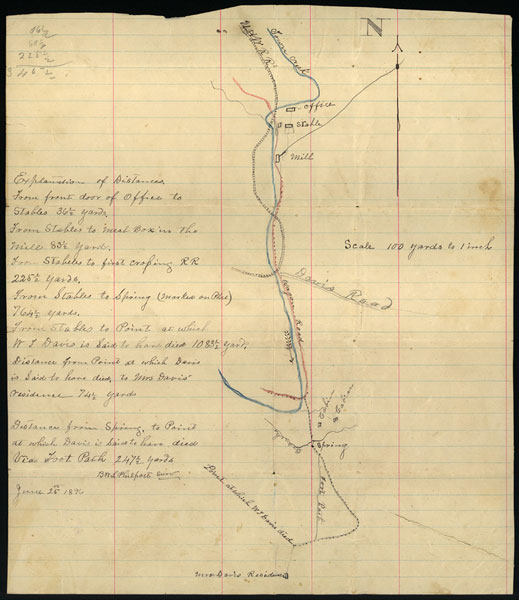 N
Office
Stable
Mill
Explanation of Distances
From front door of Office to
Stables 36½ yards.
From Stables to meat Box in the
Mill 83½ Yards.
From Stables to first crossing RR
225½ Yards.
From Stables to Spring (marked on Plat)
764½ yards.
From Stables to Point at which
W T Davis is Said to have died 1083½ yard.
Distance from Point at which Davis
is Said to have died to Mrs Davis
residence 74½ yards
Scale 100 yards to 1 inch
Davis Road
Wagon Road
Cabin
Cabin
Spring
Distance from Spring, to Point
at which Davis is Said to have died
Via Foot Path 247½ yards
June 25th
Point at which W T Davis died
Foot Path
Mrs Davis Residence